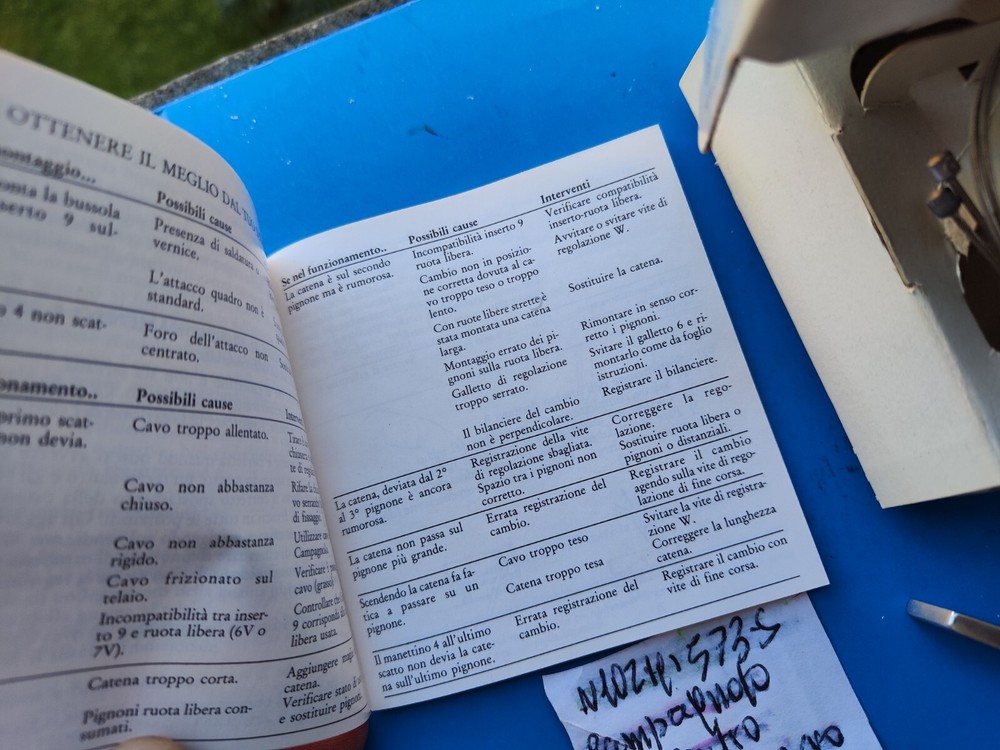 OTTENERE IL MEGLIO DAL
Possibili cause
Presenza di saldatura o
vernice.
L'attacco quadro non è
standard.
Foro dell'attacco non
centrato.
onta la bussola
serto 9 sul-
o 4 non scat-
Possibili cause
primo scat-
non devia.
Cavo troppo allentato.
Cavo non abbastanza
chiuso.
Cavo non abbastanza
rigido.
Cavo frizionato sul
telaio.
Incompatibilità tra inser-
to 9 e ruota libera (6V o
7V).
Catena troppo corta.
Pignoni ruota libera con-
sumati.
te di
di fissaggio.
Utilizzare
Verificare
Controllare che
9 corrisponda
libera usata.
Aggiungere
catena.
Verificare stato
e sostituire pignoni.
Se nel funzionamento..
La catena è sul secondo
pignone ma è rumorosa.
La catena, deviata dal 2°
al 3° pignone è ancora
rumorosa.
La catena non passa sul
pignone più grande.
Scendendo la catena fa fa-
tica a passare su un
pignone.
Il manettino 4 all'ultimo
scatto non devia la cate-
na sull'ultimo pignone.
Possibili cause
Incompatibilità inserto 9
ruota libera.
Cambio non in posizio-
ne corretta dovuta al ca-
vo troppo teso o troppo
lento.
Con ruote libere strette è
stata montata una catena
larga.
Montaggio errato dei pi-
gnoni sulla ruota libera.
Galletto di regolazione
troppo serrato.
Il bilanciere del cambio
non è perpendicolare.
Registrazione della vite
di regolazione sbagliata.
Spazio tra i pignoni non
corretto.
Errata registrazione del
cambio.
Cavo troppo teso
Catena troppo tesa
Errata registrazione del
cambio.
Interventi
Verificare compatibilità
inserto-ruota libera.
Avvitare o svitare vite di
regolazione W.
Sostituire la catena.
Rimontare in senso cor-
retto i pignoni.
Svitare il galletto 6 e ri-
montarlo come da foglio
istruzioni.
Registrare il bilanciere.
Correggere la rego-
lazione.
Sostituire ruota libera o
pignoni o distanziali.
Registrare il cambio
agendo sulla vite di rego-
lazione di fine corsa.
Svitare la vite di registra-
zione W.
Correggere la lunghezza
catena.
Registrare il cambio con
vite di fine corsa.